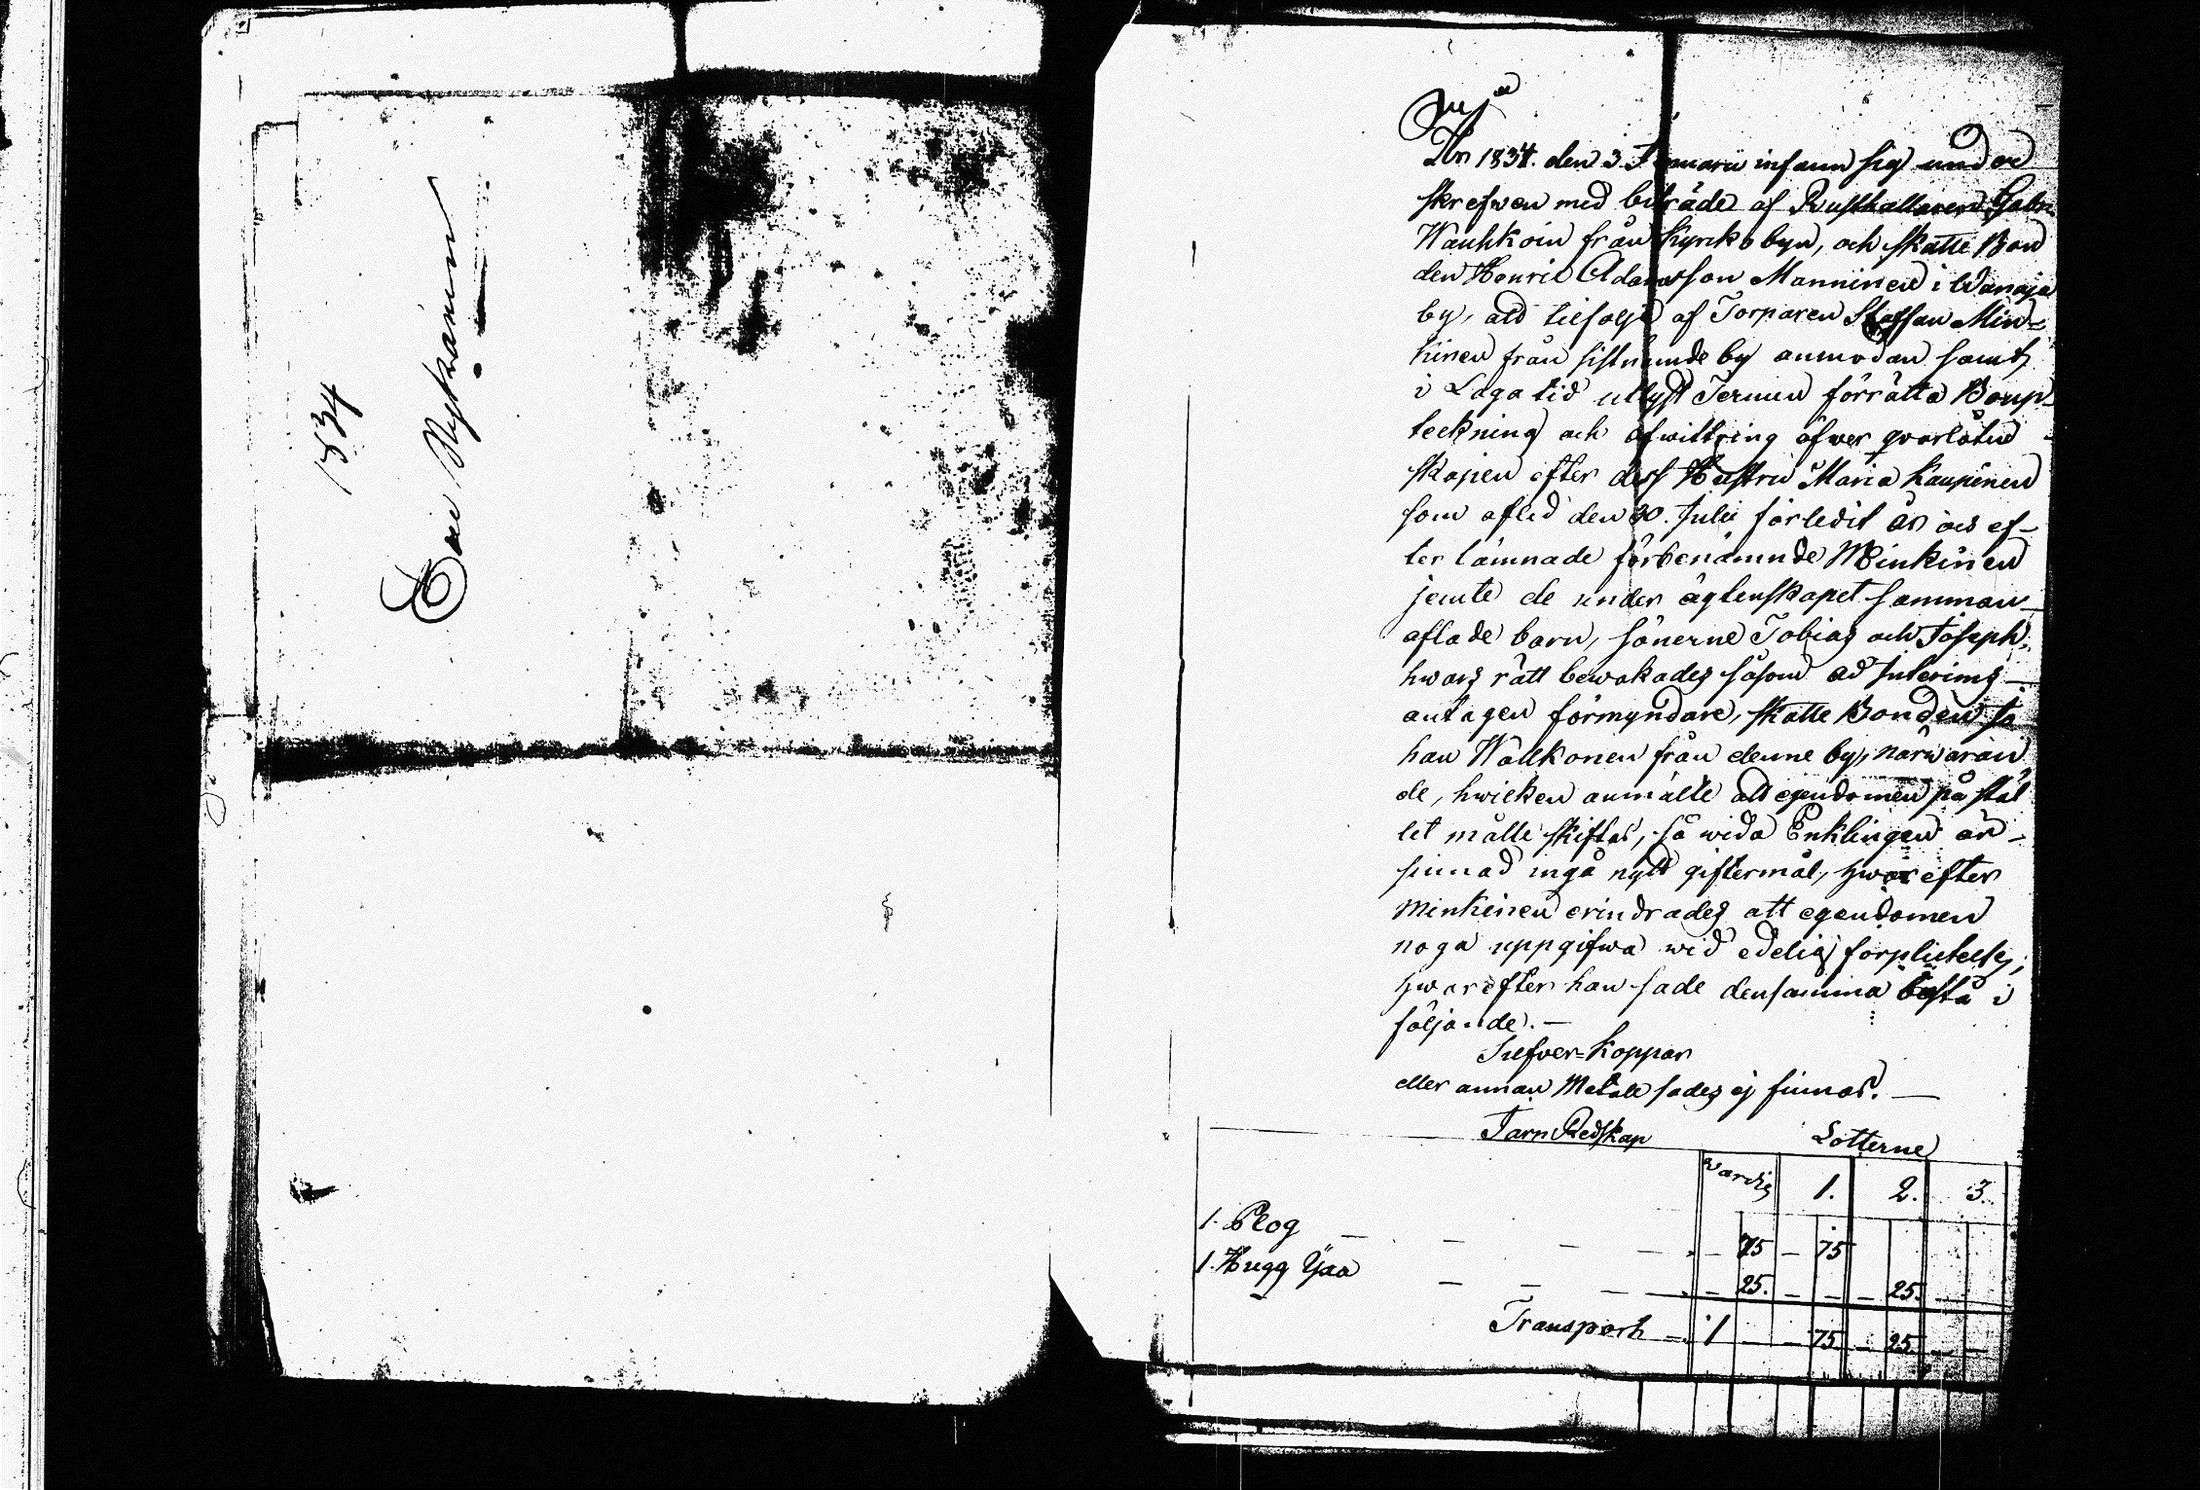 1834
Ewa Nykänen
År 1834. den 3. Januarii infann sig under
skrefwen med biträde af Rusthållaren Gabr.
Wauhkoin från Kyrkobyn, och skatte Bon
den Henric Adamsson Manninen i Wanaja
by, att tilfölje af Torparen Staffan Min-
kinen från sistnämde by anmodan samt
i Laga tid utlyst Termin förrätta Boup-
teckning och afwittring öfwer qvarlåten
skapen efter dess Hustru Maria Kaupinen
som afled den 30. Julii förledit år och ef-
ter lämnade förbenämnde Minkinen
jemte de under ägtenskapet samman
aflade barn, sönerne Tobias och Joseph,
hwars rätt bewakades såsom ad Interims
antagen förmyndare, skatte Bonden Jo
han Walkonen från denne by, närwaran
de, hwilken anmälte att egendomen på stäl
let måtte skiftas, så wida Enklingen är
sinnad ingå nytt giftermål, hwarefter
Minkinen erindrades att egendomen
noga uppgifwa wid edelig förplictelse,
hwarefter han sade densamma bestå i
följande. —
Silfwer-Koppar
eller annan Metall sades ej finnas. —
Jarn Redskap Lotterne
Värdig 1. 2. 3.
1. Plog — — — — . — 75 — 75
1. Hugg Yxa — — — . — 25. — — — 25.
Transport — 1 — — 75 — 25 — —